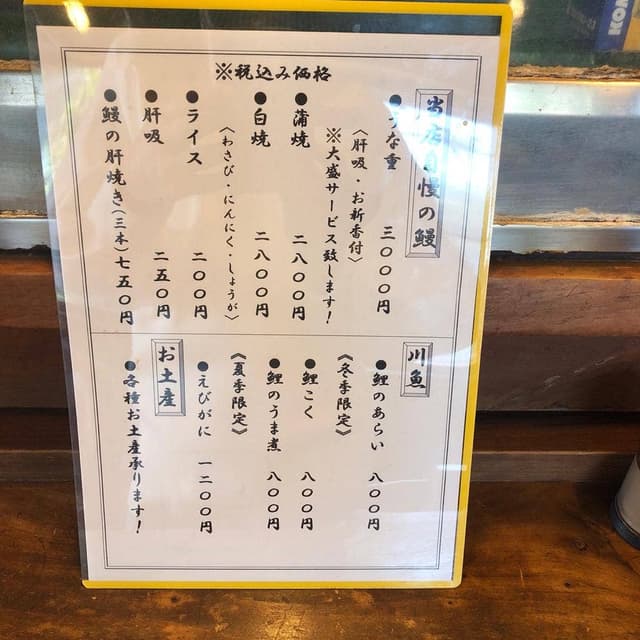 ※税込み価格
当店自慢の鰻
●うな重 三〇〇〇円
〈肝吸・お新香付〉
※大盛サービス致します！
●蒲焼 二八〇〇円
●白焼 二八〇〇円
〈わさび・にんにく・しょうが〉
●ライス 二〇〇円
●肝吸 二五〇円
●鰻の肝焼き(三本)七五〇円
川魚
●鯉のあらい 八〇〇円
《冬季限定》
●鯉こく 八〇〇円
●鯉のうま煮 八〇〇円
《夏季限定》
●えびがに 一二〇〇円
お土産
●各種お土産承ります！